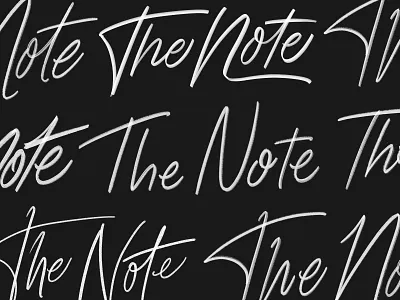 Note The Note Th
Note The Note The
The Note The No